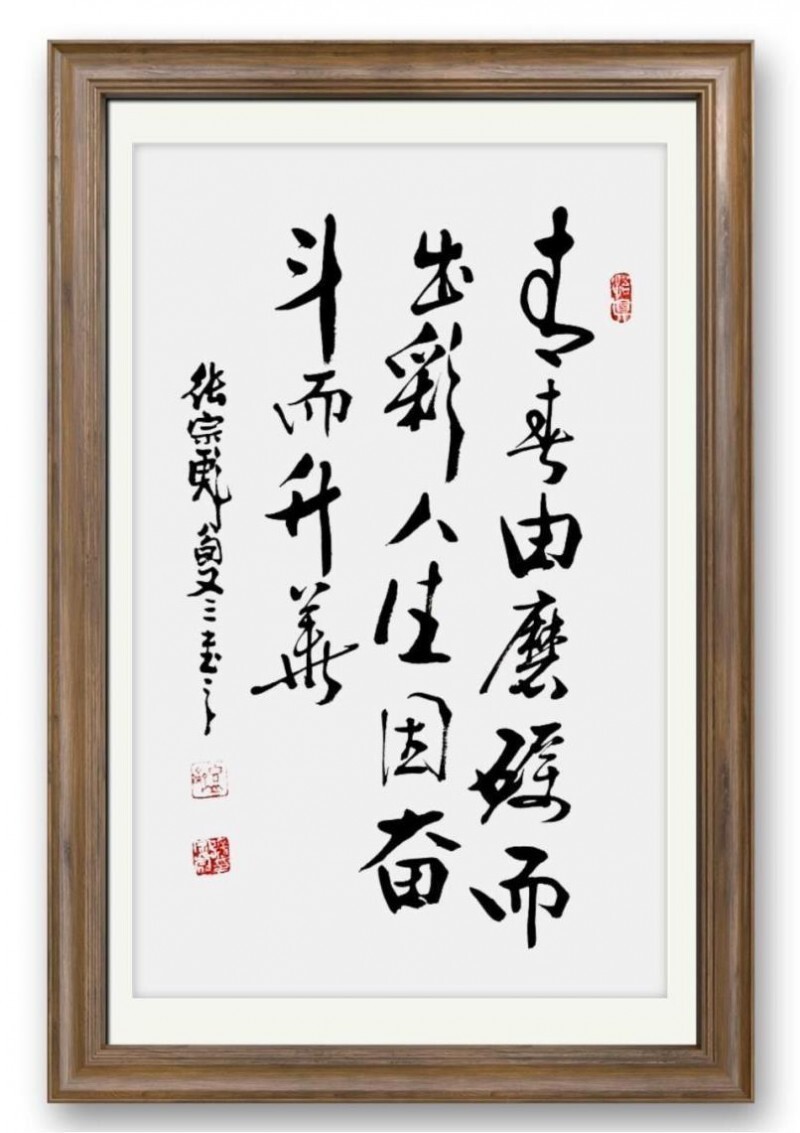 青春由磨砺而
出彩人生因奋
斗而升華
张宗彪